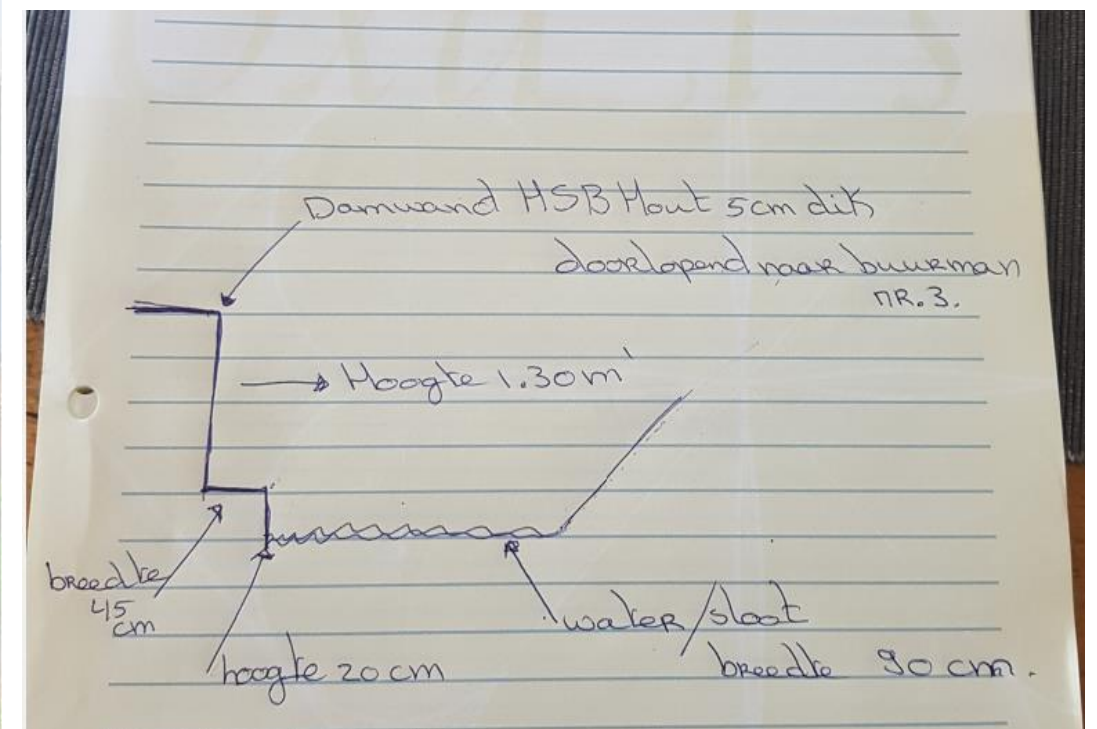 Damwand HSB Hout 5cm dik
doorlopend naar buurman
nr. 3.
Hoogte 1.30 m'
breedte
45
cm
hoogte 20 cm
water/sloot
breedte 90 cm.